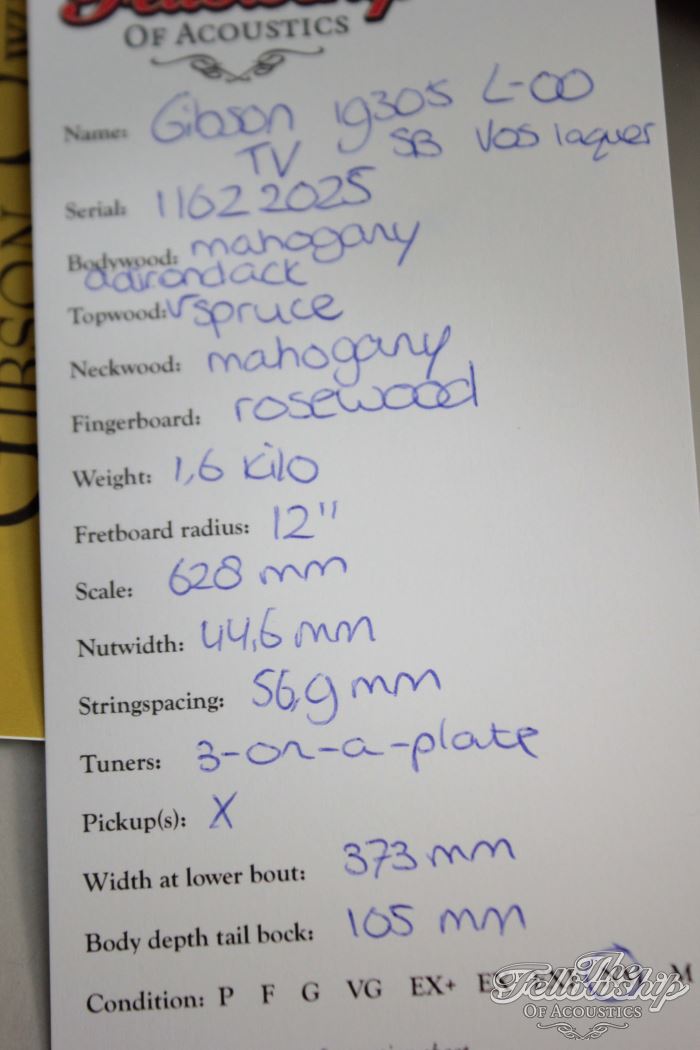 Fellowship
OF ACOUSTICS
Name: Gibson 1930s L-00
TV SB VOS laquer
Serial: 11622025
Bodywood: mahogany
adirondack
Topwood: spruce
Neckwood: mahogany
Fingerboard: rosewood
Weight: 1,6 kilo
Fretboard radius: 12"
Scale: 628 mm
Nutwidth: 44,6 mm
Stringspacing: 56,9 mm
Tuners: 3-on-a-plate
Pickup(s): X
Width at lower bout: 373 mm
Body depth tail bock: 105 mm
Condition: P F G VG EX+ M
The
Fellowship
OF ACOUSTICS
GIBSON